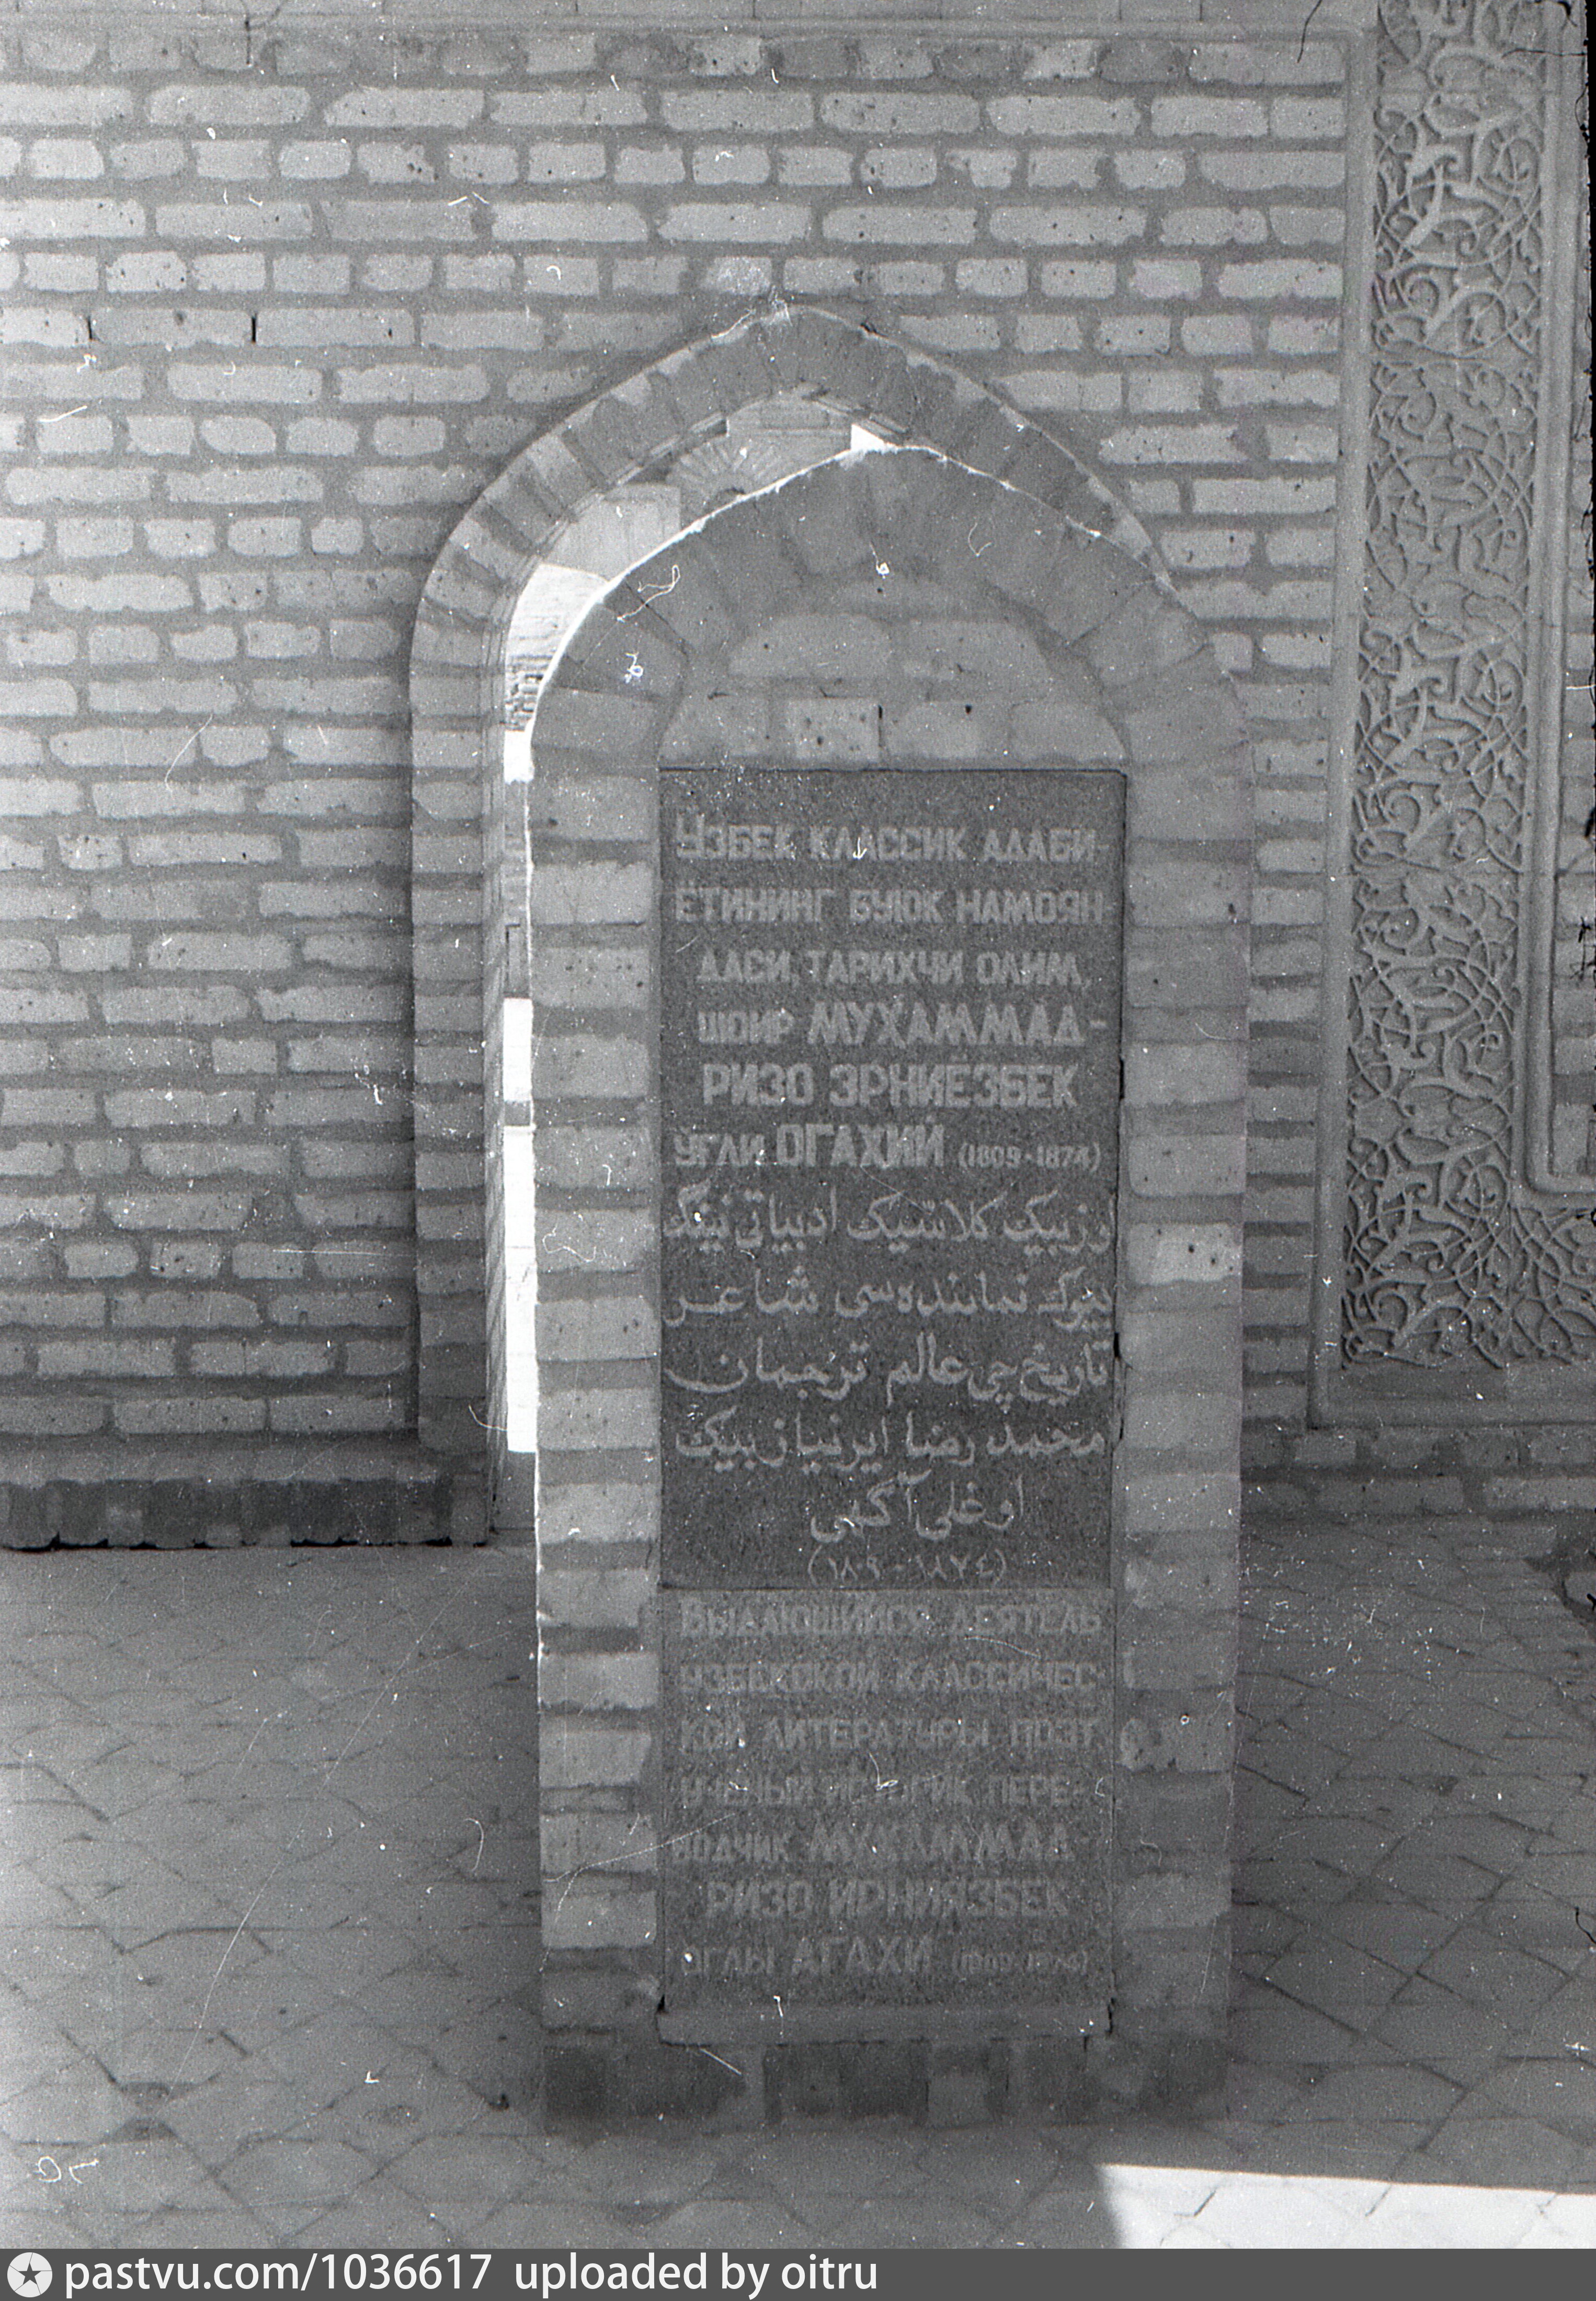 Ўзбек классик адаби-
ётининг буюк намоян
даси, тарихчи олим,
шоир МУҲАММАД-
РИЗО ЭРНИЁЗБЕК
ЎГЛИ ОГАҲИЙ (1809-1874)
اوزبیک کلاسّیک ادبیاتی نینگ
بیوک نماینده سی شاعر
تاریخ چی عالم ترجمان
محمد رضا ایرنیاز بیک
اوغلی آگهی
(١٨٠٩-١٨٧٤)
Выдающийся деятель
узбекской классичес-
кой литературы поэт,
ученый историк, пере-
водчик МУХАММАД-
РИЗО ИРНИЯЗБЕК
УГЛЫ АГАХИ (1809-1874)
pastvu.com/1036617 uploaded by oitru